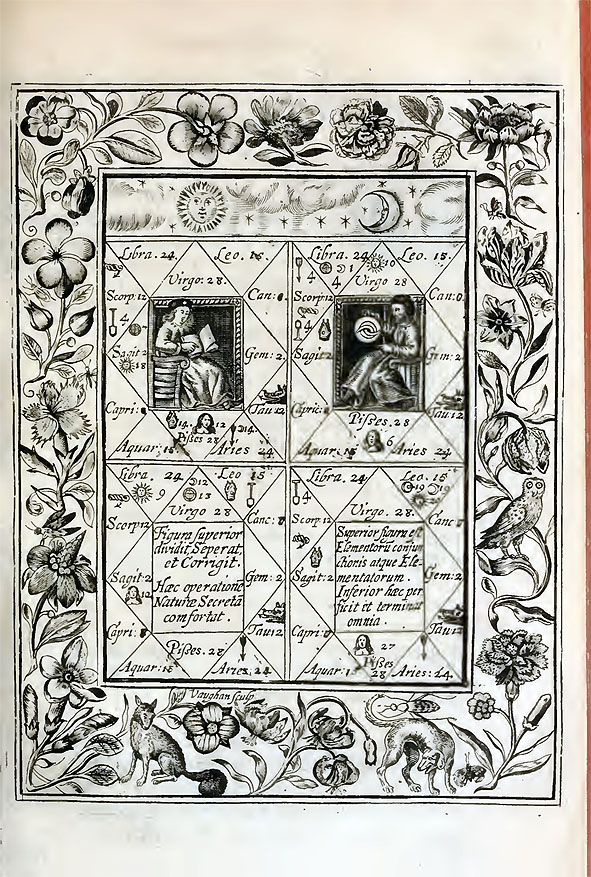 Libra. 24. Leo. 15.
Virgo: 28.
Scorp: 12
4
Sagit: 2
18
Gem: 2.
Capri:
Tau 12
14. 12 14.
Pisses 28
Aquar: 15 Aries 24
Libra. 24 Leo. 15.
4 1 10
4 Virgo 28
Scorp: 12 Can: 0.
4
Sagit: 2 Gem: 2
Capric: Tau 12
Pisses. 28
6
Aquar. 15 Aries 24
Libra. 24 Leo 15
9 12
13
Virgo 28
Scorp 12
Figura superior
dividit, Seperat,
et Corrigit.
Hæc operatione
Naturæ Secreta
comfortat.
Sagit: 2 Gem: 2
Capri: Tau 12
Pisses. 28
Aquar: 15 Aries. 24
Libra. 24. Leo. 15
4 19 19
Virgo. 28.
Scorp: 12
Superior figura est
Elementorū conjun
ctionis atque Ele-
mentatorum.
Inferior hæc per
ficit et terminat
omnia.
Sagit: 2 Gem: 2
Capri: Tau 12
27
Pisses
28
Aquar: Aries: 24.
Vaughan sculp